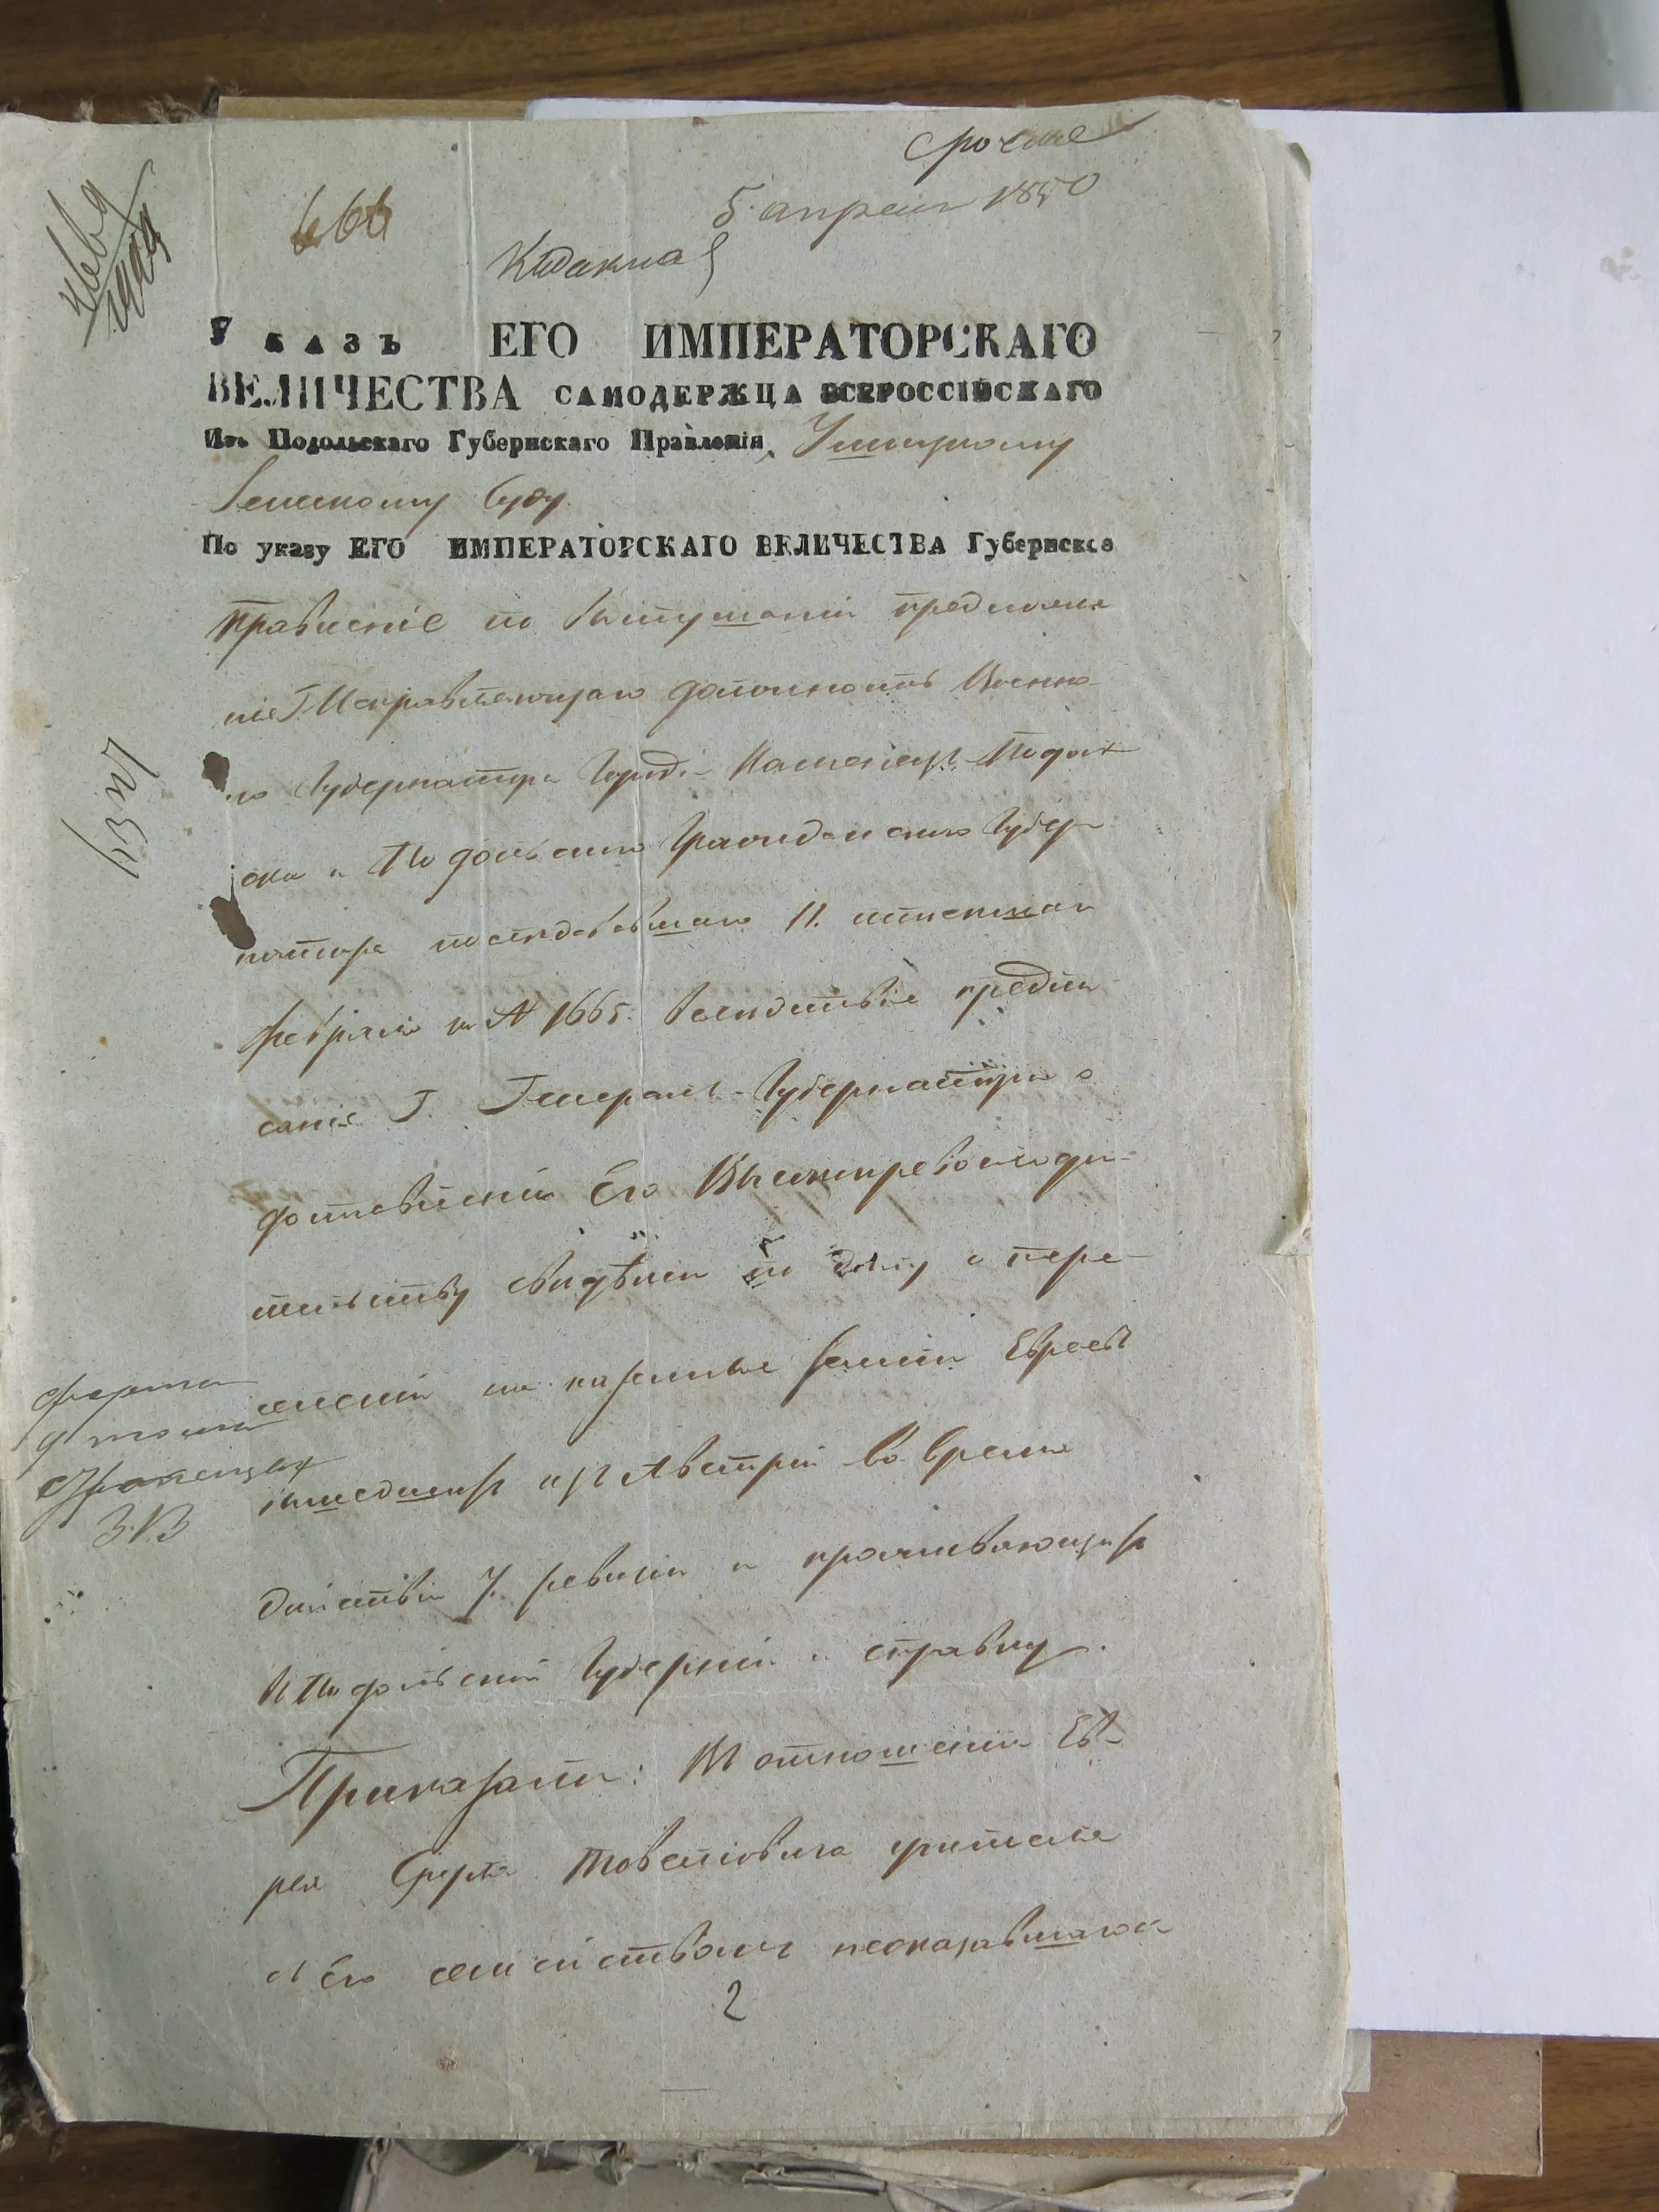 срочное
5 апреля 1850
666
Указъ ЕГО ИМПЕРАТОРСКАГО
ВЕЛИЧЕСТВА САМОДЕРЖЦА ВСЕРОССІЙСКАГО
Изъ Подольскаго Губернскаго Правленія, Ушицкому
Земскому Суду.
По указу ЕГО ИМПЕРАТОРСКАГО ВЕЛИЧЕСТВА Губернское
Правленіе по выслушаніи предложе
нія Г. Исправляющаго должность Военна
го Губернатора Города Каменецъ-Подоль
ска и Подольскаго Гражданскаго Губер
натора последовавшаго 11. истекшаго
февраля за № 1665. вследствіе предпи
санія Г. Генералъ-Губернатора о
доставленіи Его Высокопревосходи-
тельству сведеніи по делу о пере-
селеніи на казенные земли Евреевъ
вышедшихъ изъ Австріи во время
действія 7. ревизіи и проживающихъ
въ Подольской Губерніи и справку.
Приказали: Въ отношеніи Ев-
рея Товстовича учителя
съ Его семействомъ неоказавшагося
2